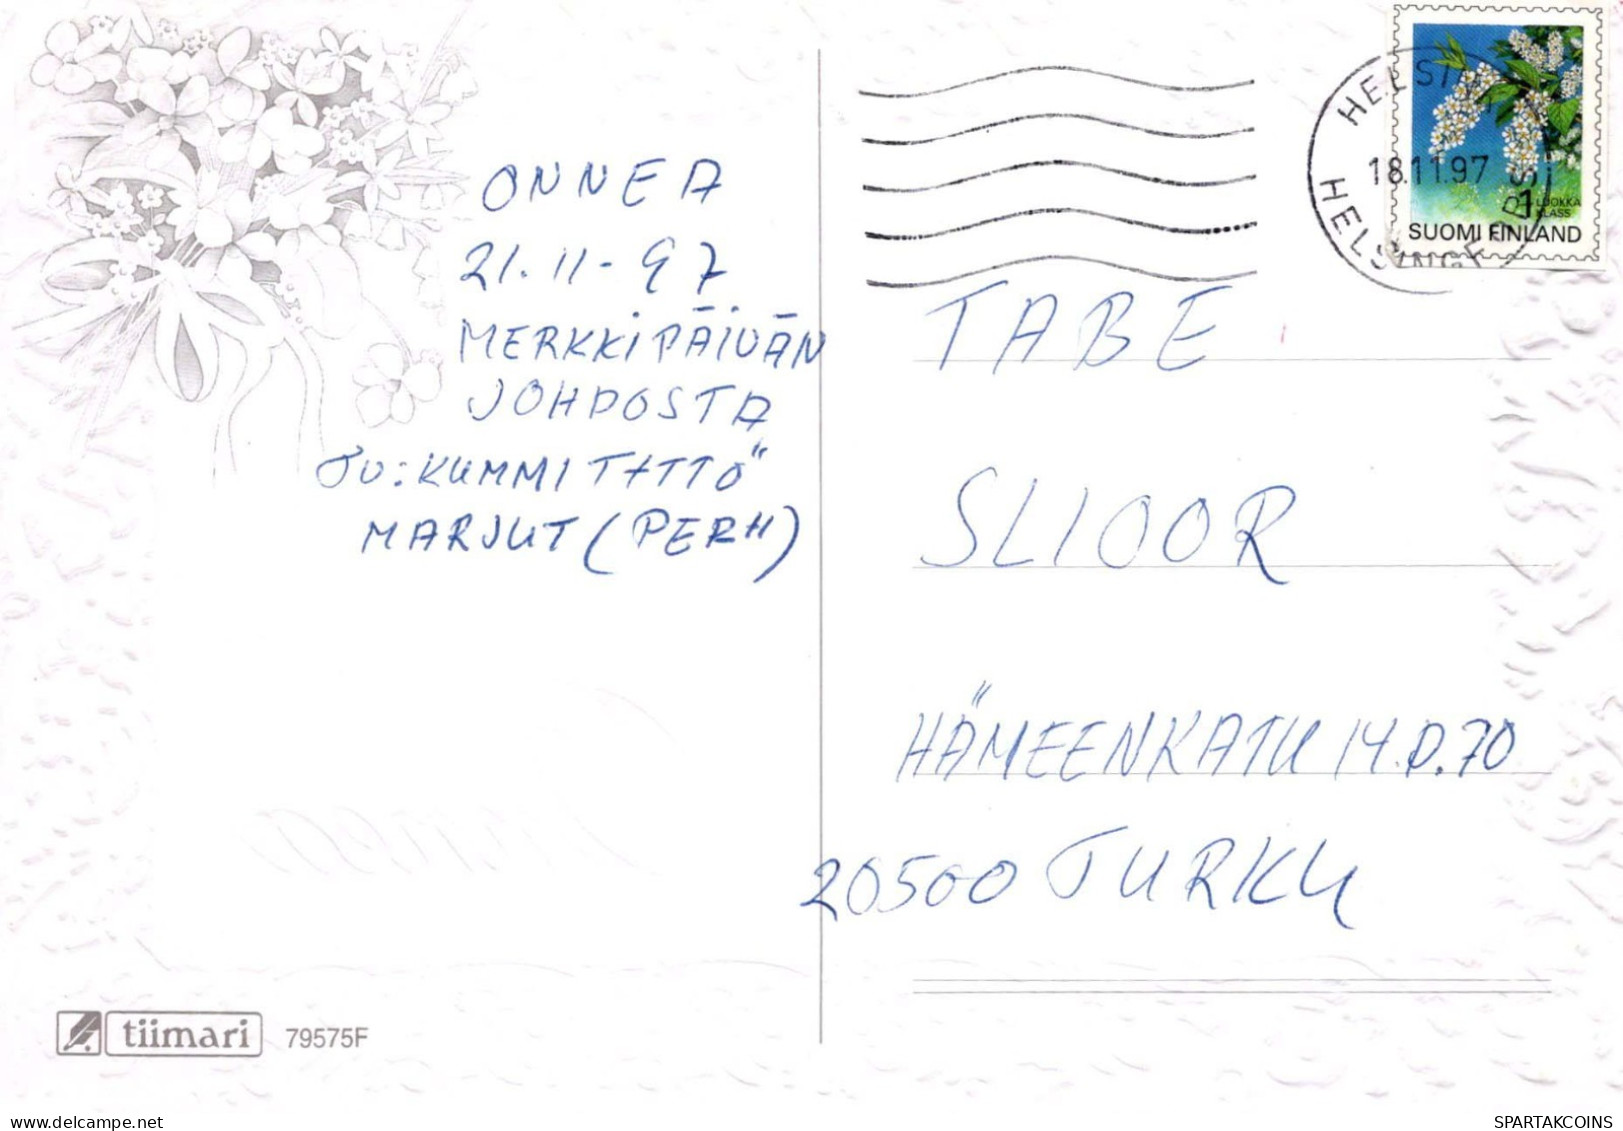 ONNEA
21.11-97
MERKKIPÄIVÄN
JOHDOSTA
TV: KUMMITÄTTÖ
MARJUT (PERH)
HELSINKI
18.11.97
HELSINGFORS
1 LUOKKA
KLASS
SUOMI FINLAND
TABE
SLIOOR
HÄMEENKATU 14.D.70
20500 TURKU
tiimari 79575F
delcampe.net
SPARTAKCOINS